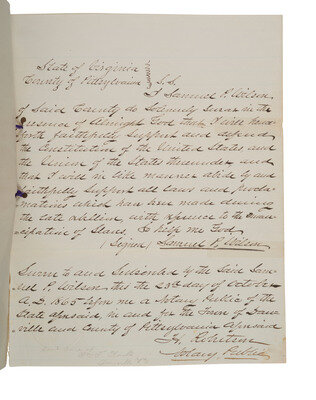 State of Virginia
County of Pittsylvania } S.S.
I Samuel P. Wilson
of said County do Solemnly Swear in the
presence of Almighty God that I will hence
forth faithfully Support and defend
the Constitution of the United States and
the Union of the States thereunder and
that I will in like manner abide by and
faithfully Support all laws and procla-
mations which have been made during
the late rebellion, with reference to the eman-
cipation of Slaves, So help me God
(Signed) Samuel P. Wilson
Sworn to and Subscribed by the Said Sam-
uel P. Wilson this the 23d day of October
A.D. 1865 before me a Notary Public of the
State aforesaid, in and for the Town of Dan-
ville and County of Pittsylvania aforesaid
Robertson
Notary Public